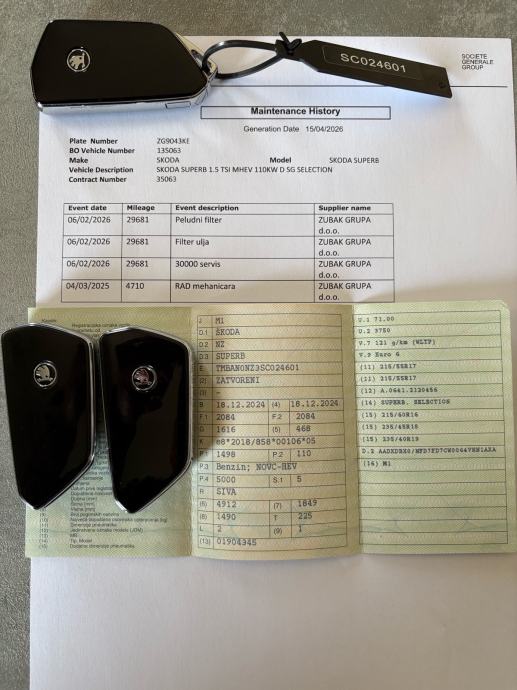 SC024601
SOCIETE
GENERALE
GROUP
Maintenance History
Generation Date 15/04/2026
Plate Number ZG9043KE
BO Vehicle Number 135063
Make SKODA Model SKODA SUPERB
Vehicle Description SKODA SUPERB 1.5 TSI MHEV 110KW D SG SELECTION
Contract Number 35063
Event date Mileage Event description Supplier name
06/02/2026 29681 Peludni filter ZUBAK GRUPA d.o.o.
06/02/2026 29681 Filter ulja ZUBAK GRUPA d.o.o.
06/02/2026 29681 30000 servis ZUBAK GRUPA d.o.o.
04/03/2025 4710 RAD mehanicara ZUBAK GRUPA d.o.o.
J M1
D.1 ŠKODA
D.2 NZ
D.3 SUPERB
E TMBAN0NZ3SC024601
(2) ZATVORENI
(3) -
B 18.12.2024 (4) 18.12.2024
F.1 2084 F.2 2084
G 1616 (5) 468
K e8*2018/858*00106*05
P.1 1498 P.2 110
P.3 Benzin; NOVC-HEV
P.4 5000 S.1 5
R SIVA
(6) 4912 (7) 1849
(8) 1490 T 225
L 2 (9) 1
(13) 01904345
U.1 71.00
U.2 3750
V.7 121 g/km (WLTP)
V.9 Euro 6
(11) 215/55R17
(11) 215/55R17
(14) SUPERB. SELECTION
(15) 215/60R16
(15) 235/45R18
(15) 235/40R19
(16) M1